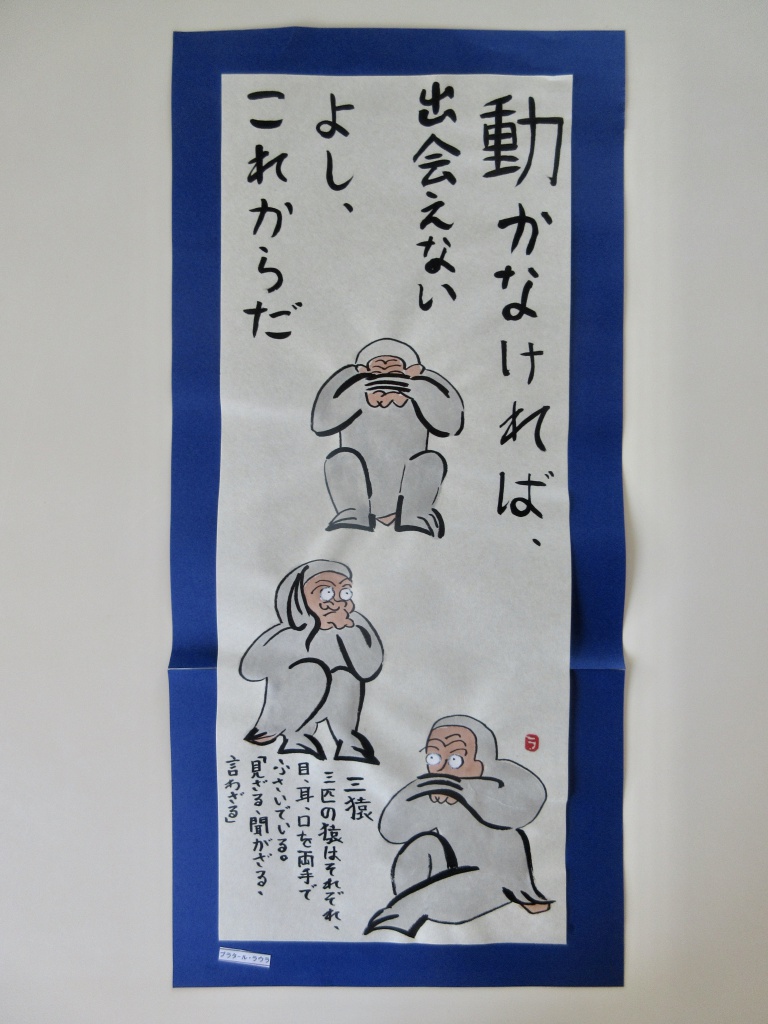 動かなければ、
出会えない
よし、
これからだ
三猿
三匹の猿はそれぞれ、
目、耳、口を両手で
ふさいでいる。
「見ざる、聞がざる、
言わざる」
ラ
ブラタール・ラウラ